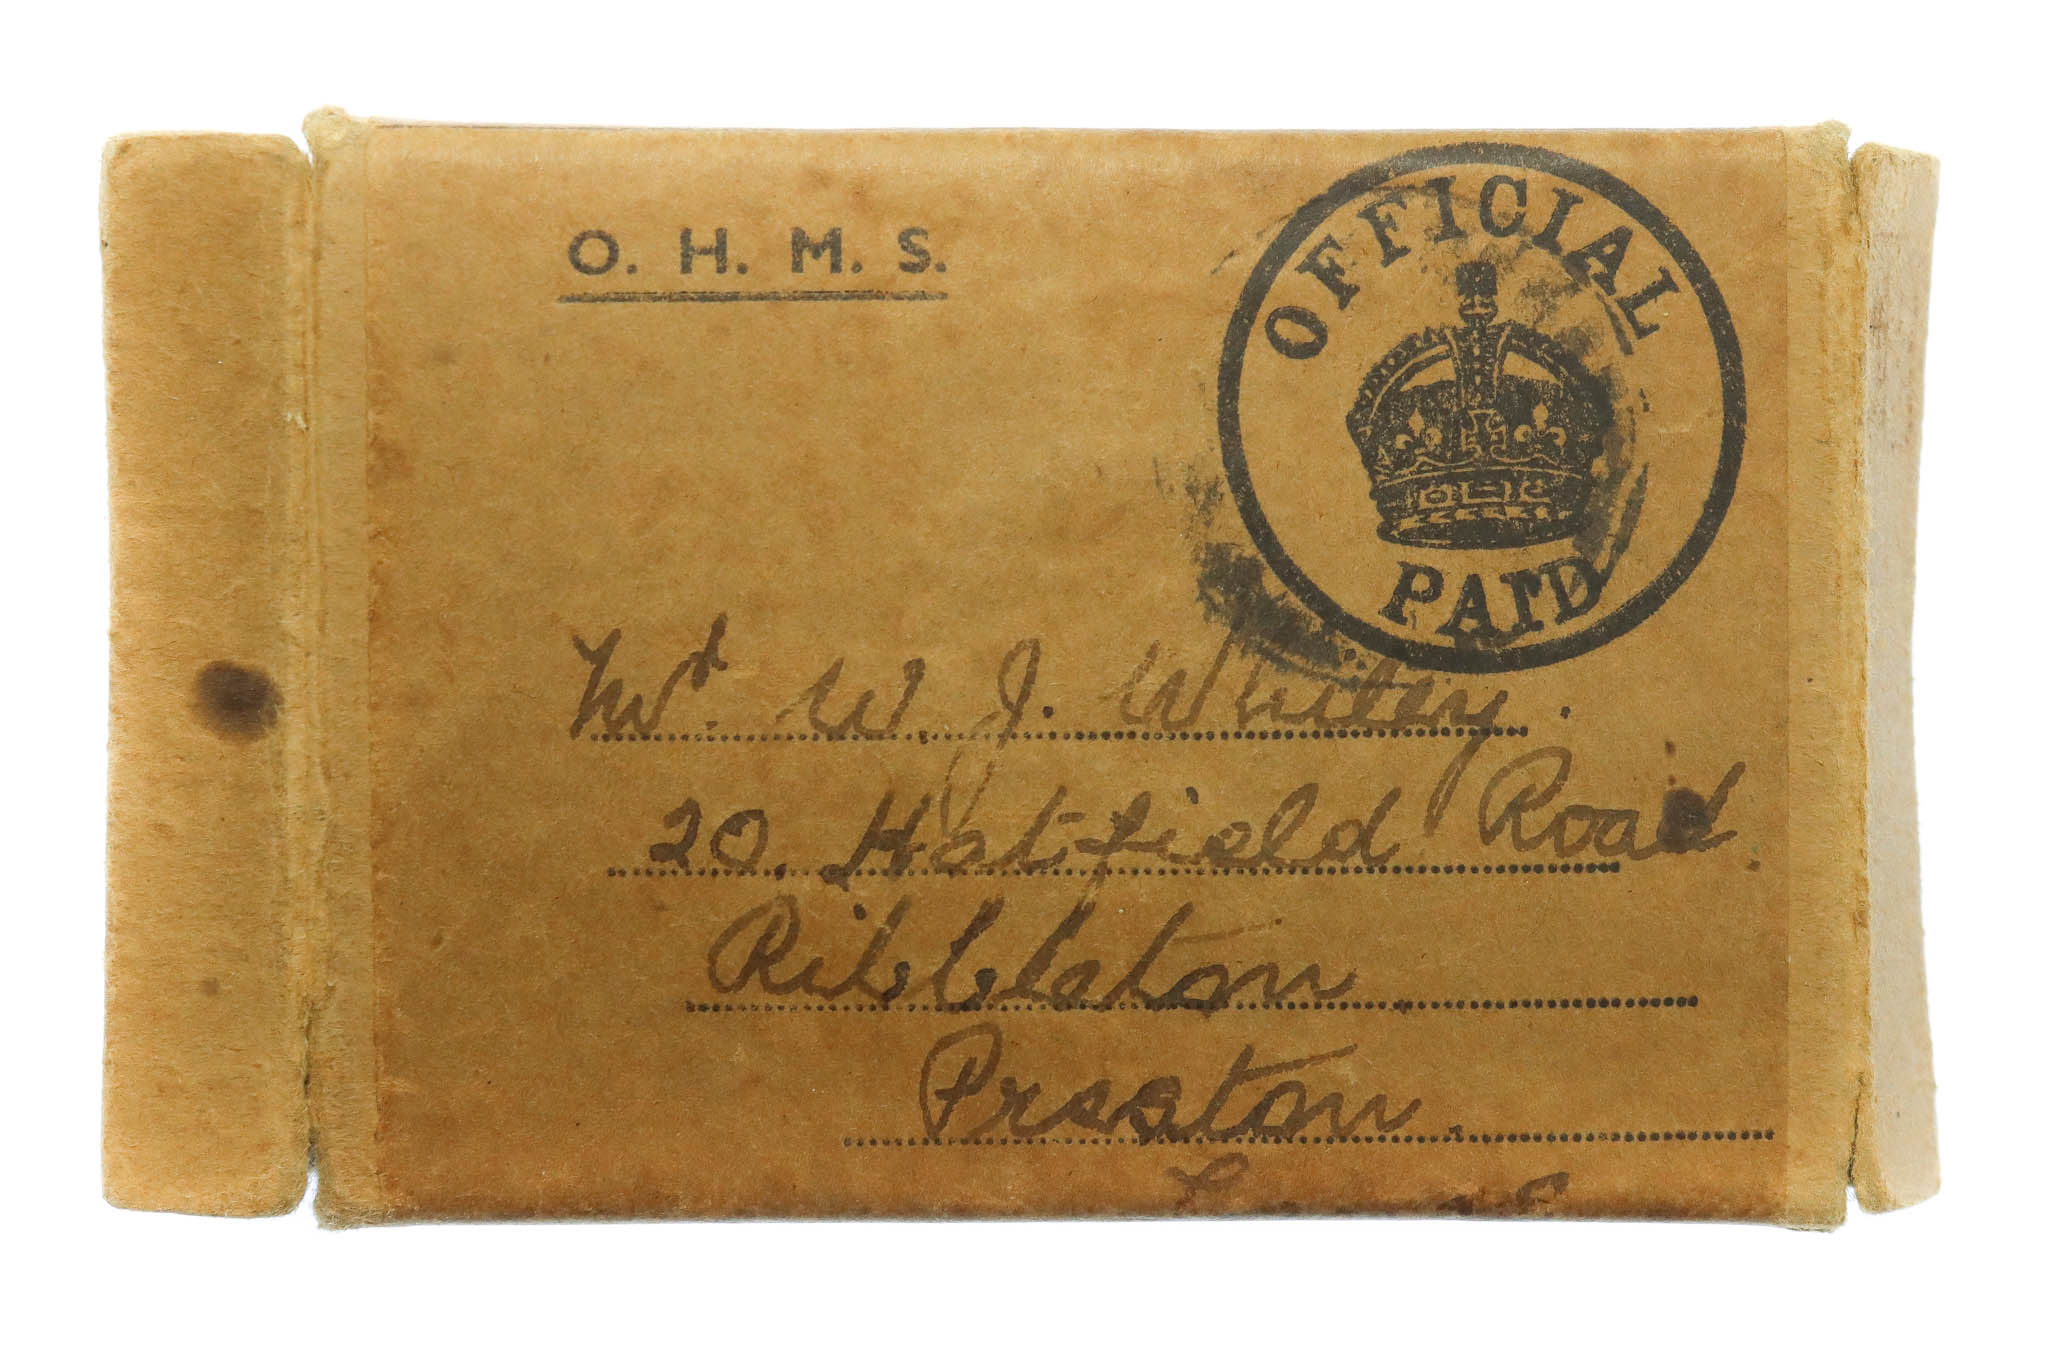 O. H. M. S.
OFFICIAL
PAID
Mr. W. J. Whitey.
20, Hatfield Road.
Ribbleton
Preston.